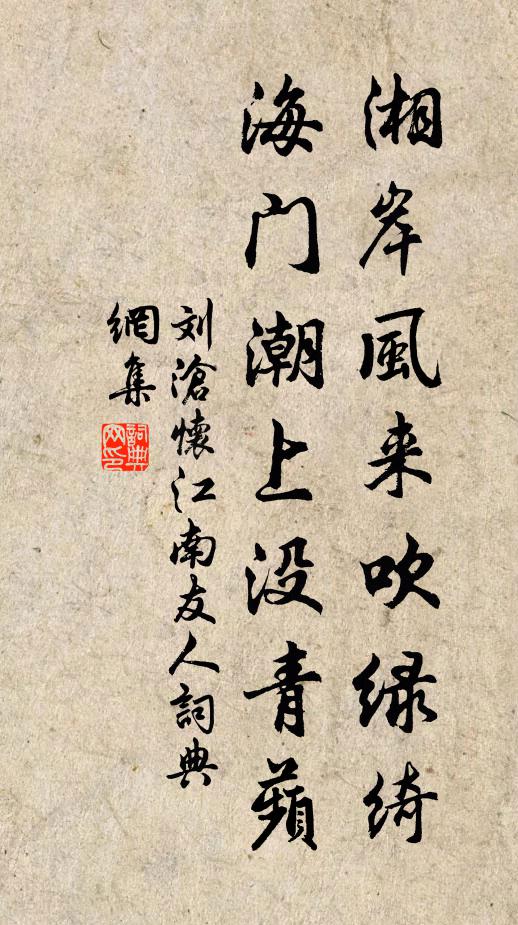 湘岸風来吹绿绮
海门潮上没青蘋
刘滄懷江南友人詞典
網集
詞典
网印